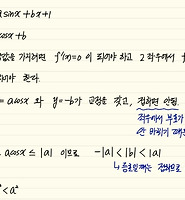 asinx + bx + 1
cosx + b
값을 가지려면 f'(x)=0 이 되어야 하고 그 좌우에서 f
되어야 한다.
= acosx 와 y=-b가 교점을 갖고, 접하면 안됨.
좌우에서 부호가
안 바뀌기 때문
acosx ≤ |a| 이므로 -|a| < |b| < |a|
↳ 등호일때는 접하므로
² < a²